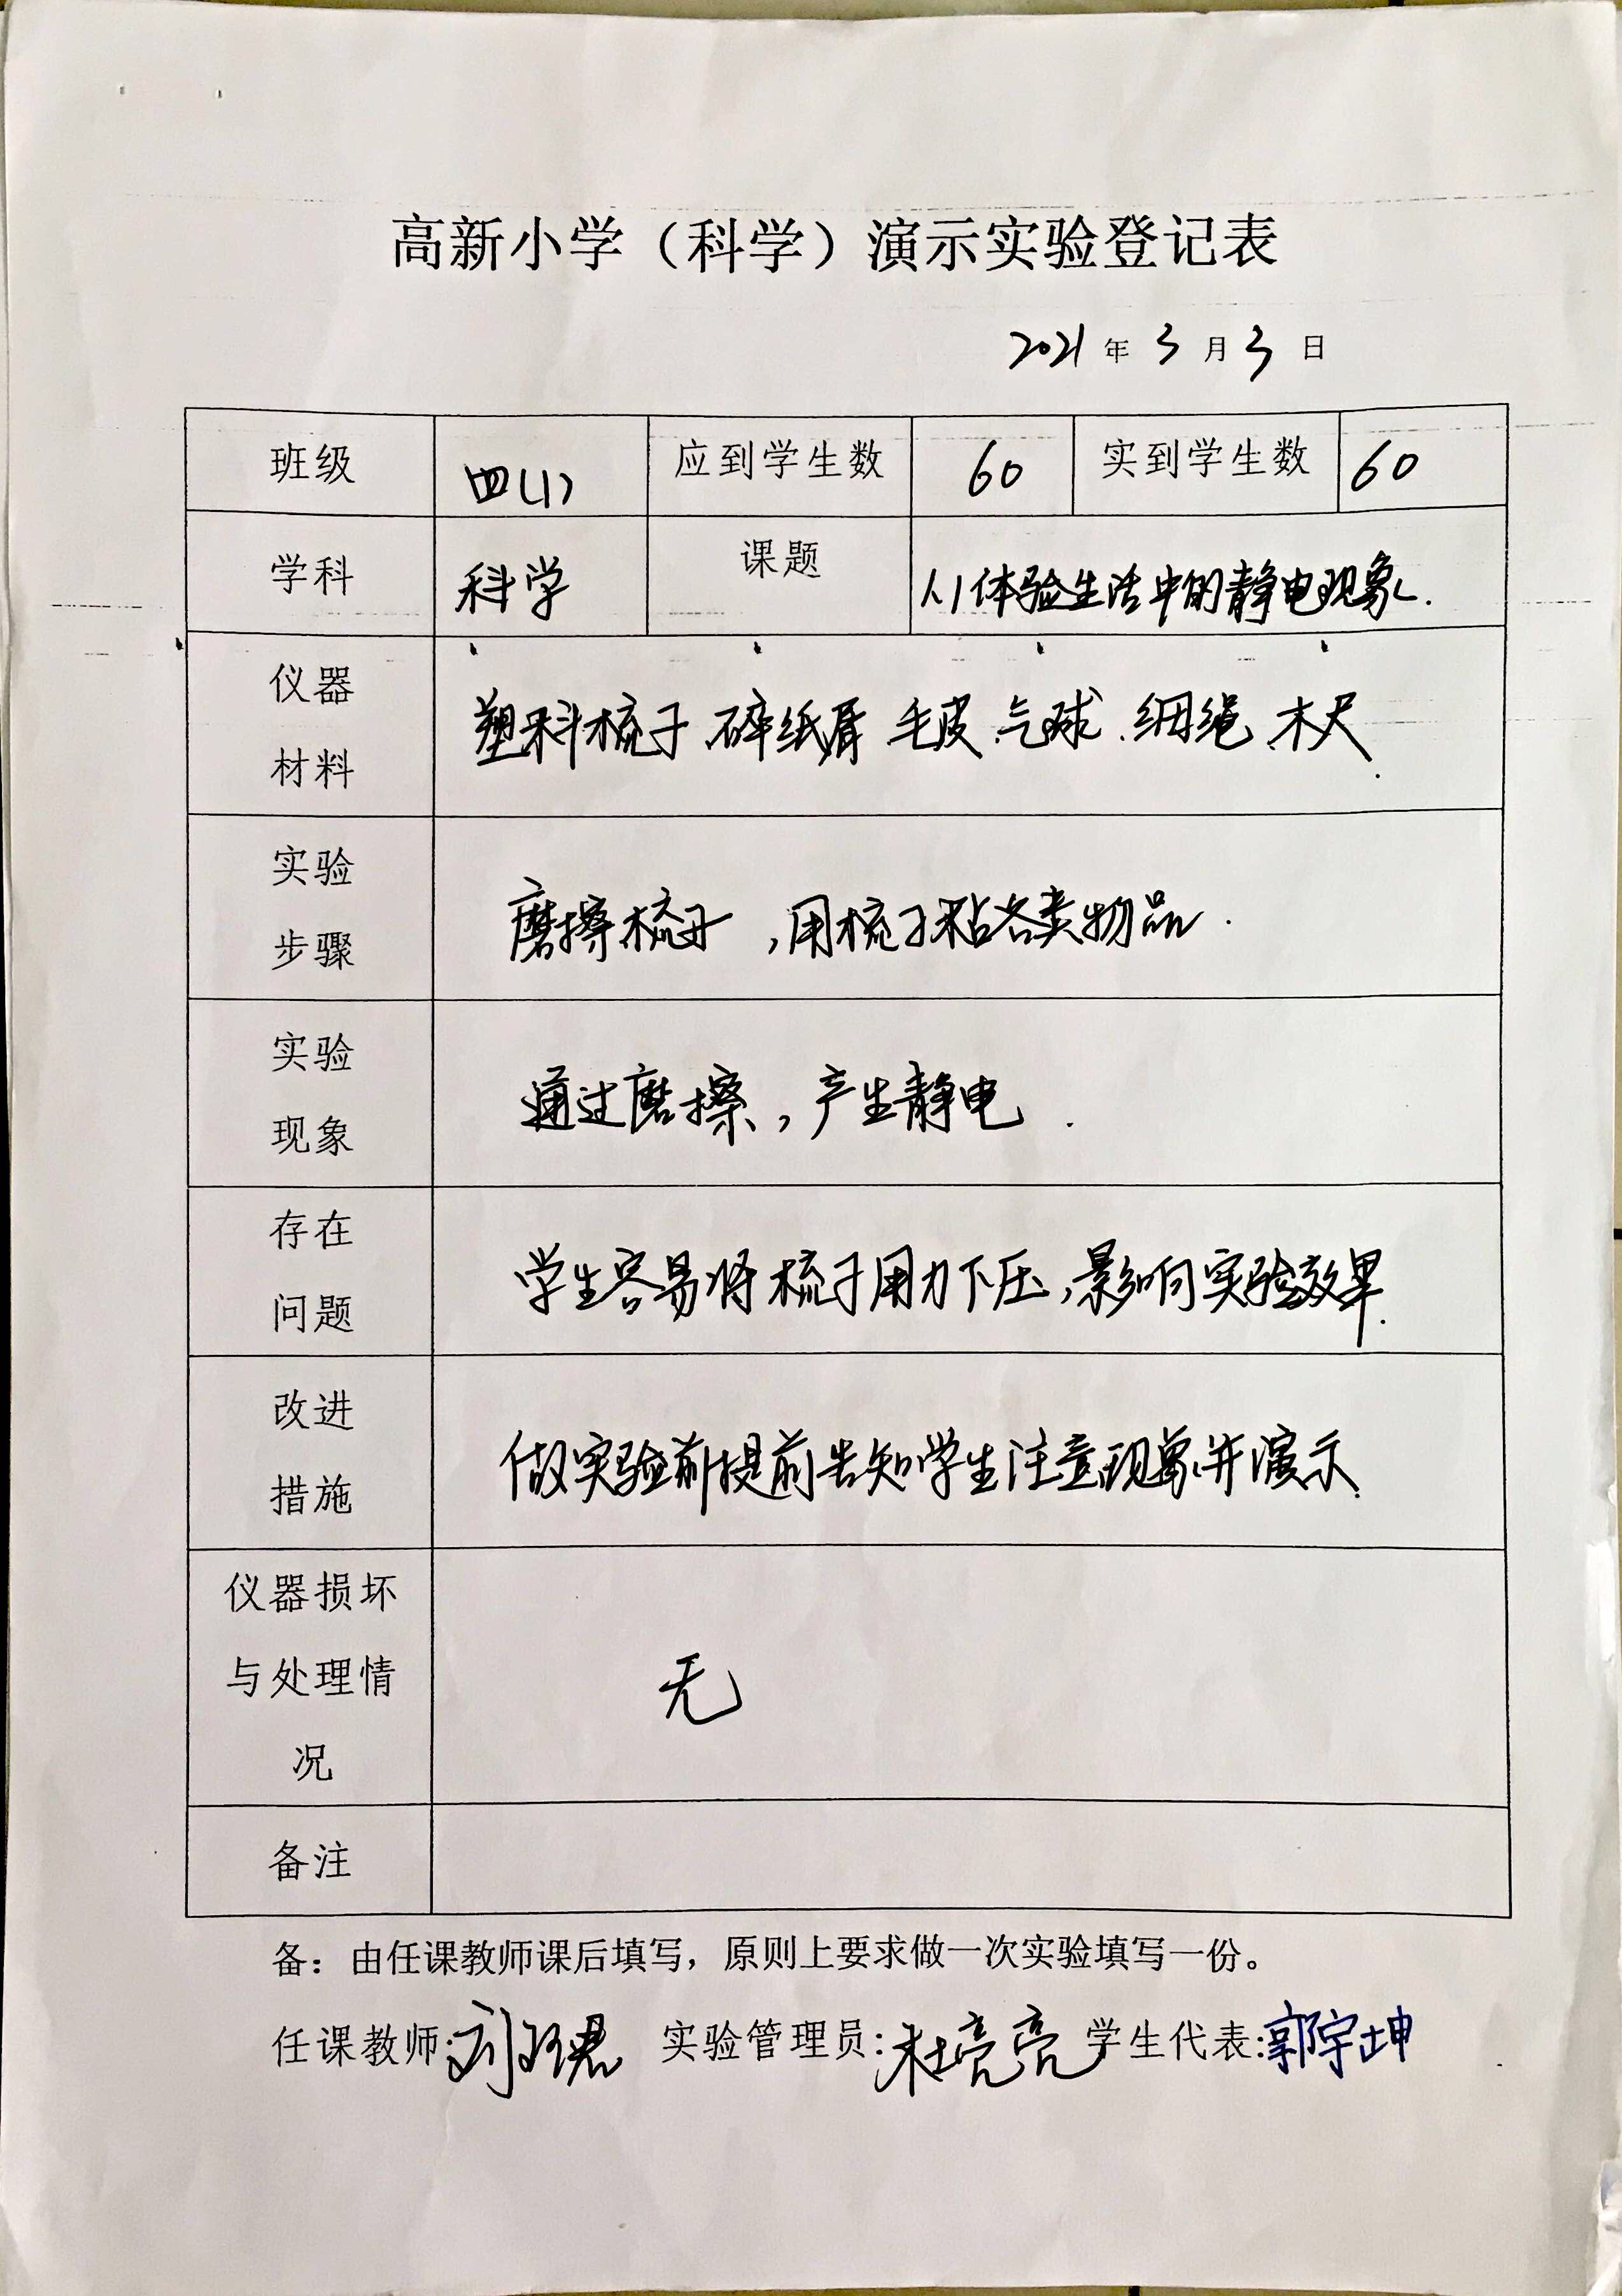 高新小学（科学）演示实验登记表
2021年3月3日
班级 四(1) 应到学生数 60 实到学生数 60
学科 科学 课题 1.1体验生活中的静电现象.
仪器
材料
塑料梳子、碎纸屑、毛皮、气球、细绳、木尺.
实验
步骤
磨擦梳子,用梳子粘各类物品.
实验
现象
通过磨擦,产生静电.
存在
问题
学生容易将梳子用力下压,影响实验效果.
改进
措施
做实验前提前告知学生注意现象并演示.
仪器损坏
与处理情
况
无
备注
备：由任课教师课后填写，原则上要求做一次实验填写一份。
任课教师:刘 君 实验管理员:杜亮亮 学生代表:郭宇坤